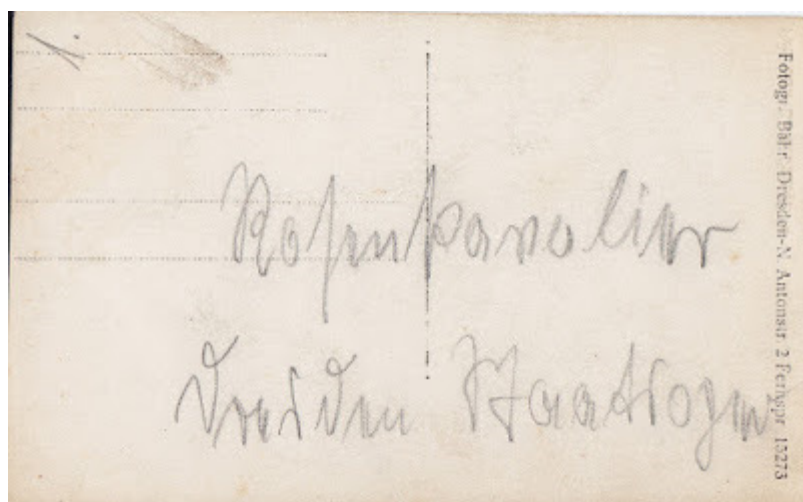 1.
Rosenkavalier
Dresden Staatsoper
Fotogr. Bähr Dresden-N. Antonstr. 2 Fernspr. 13273